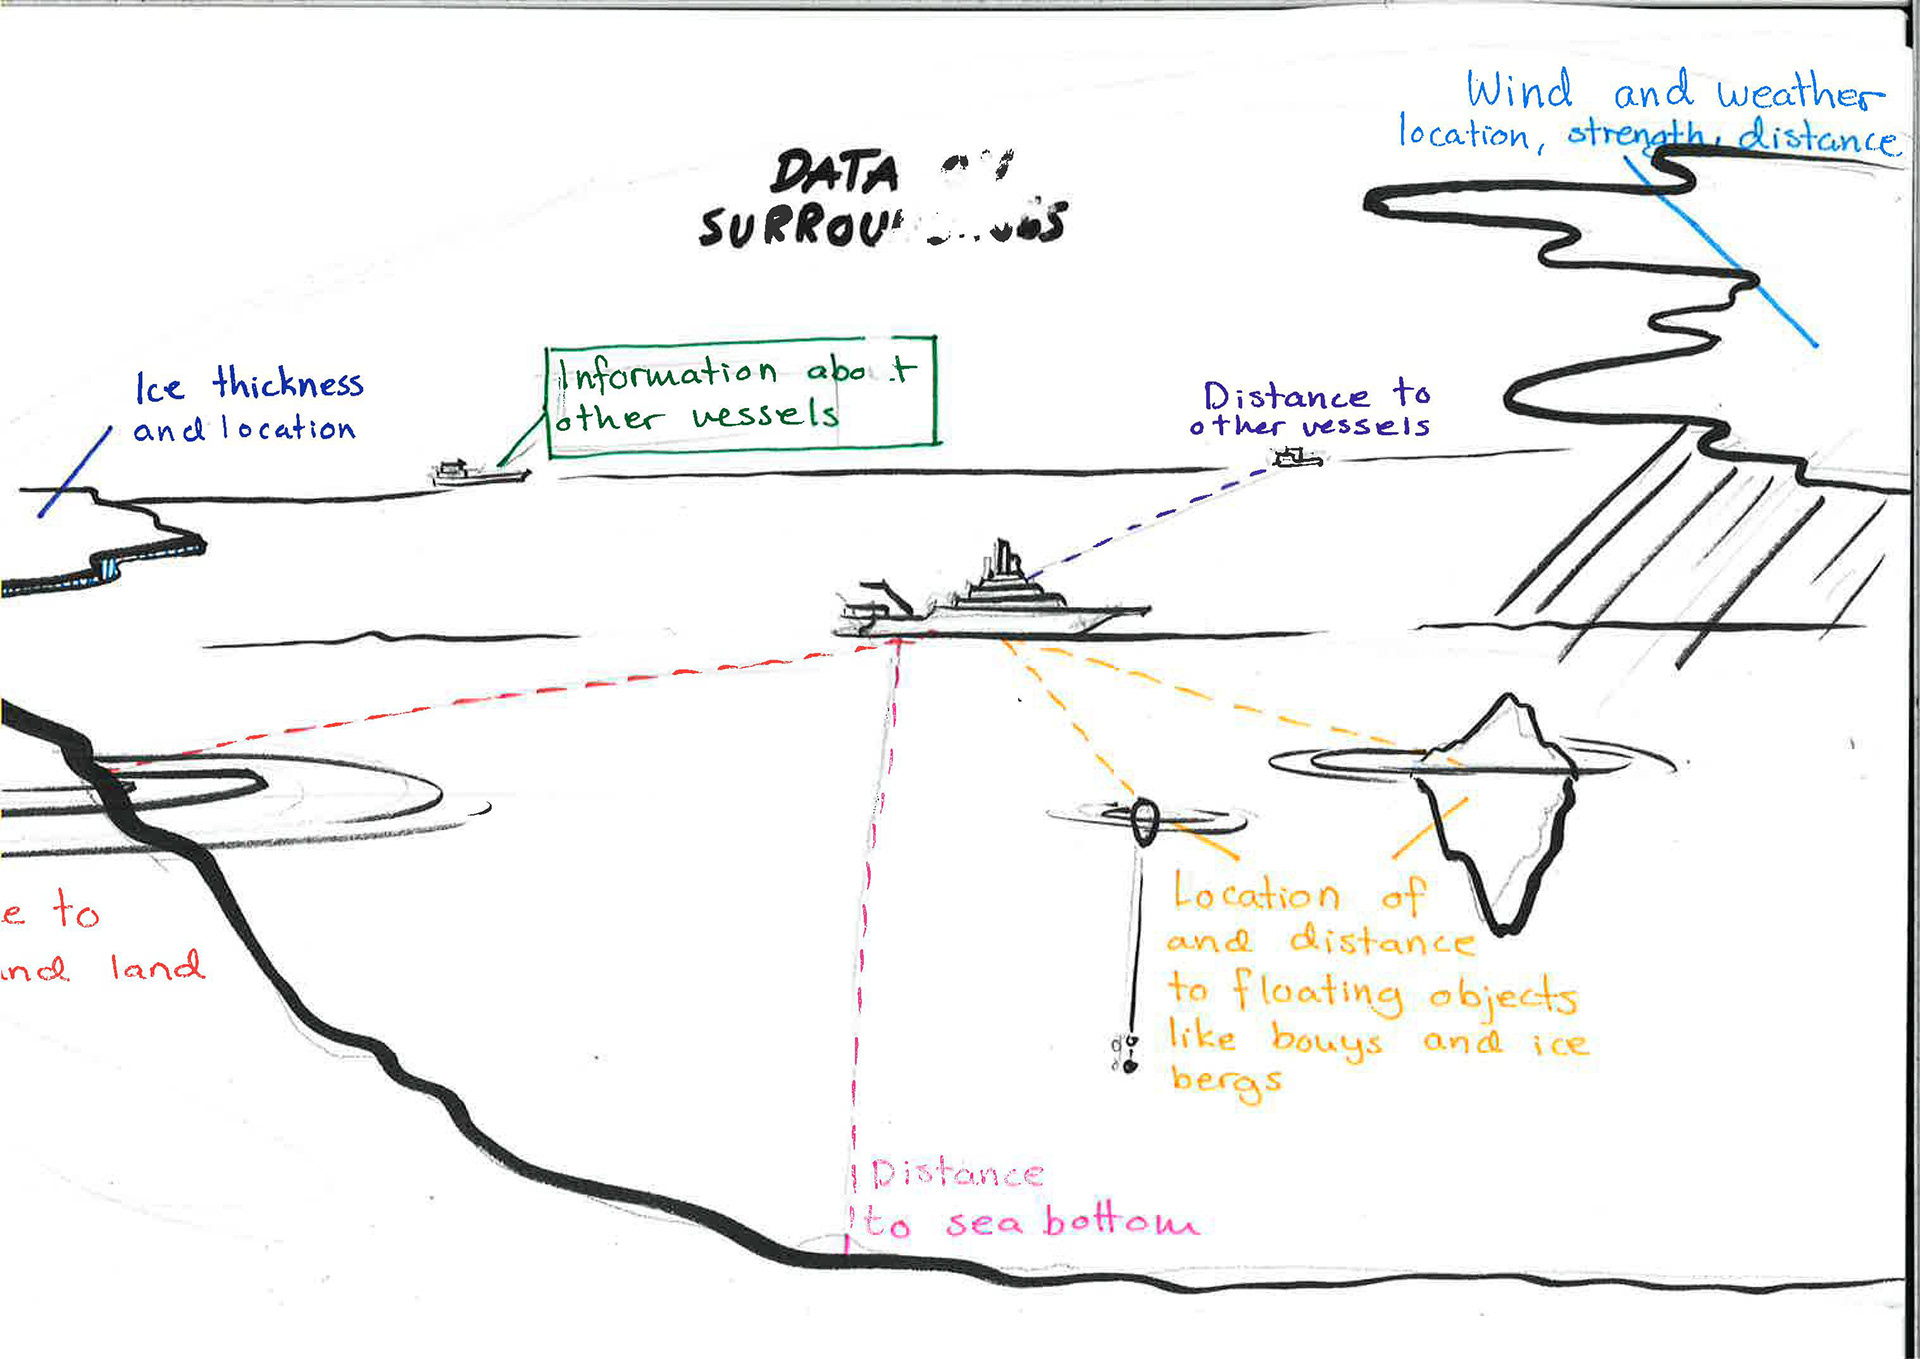 Wind and weather
location, strength, distance
DATA
Ice thickness
and location
Information about
other vessels
Distance to
other vessels
e to
land
Location of
and distance
to floating objects
like bouys and ice
bergs
Distance
to sea bottom